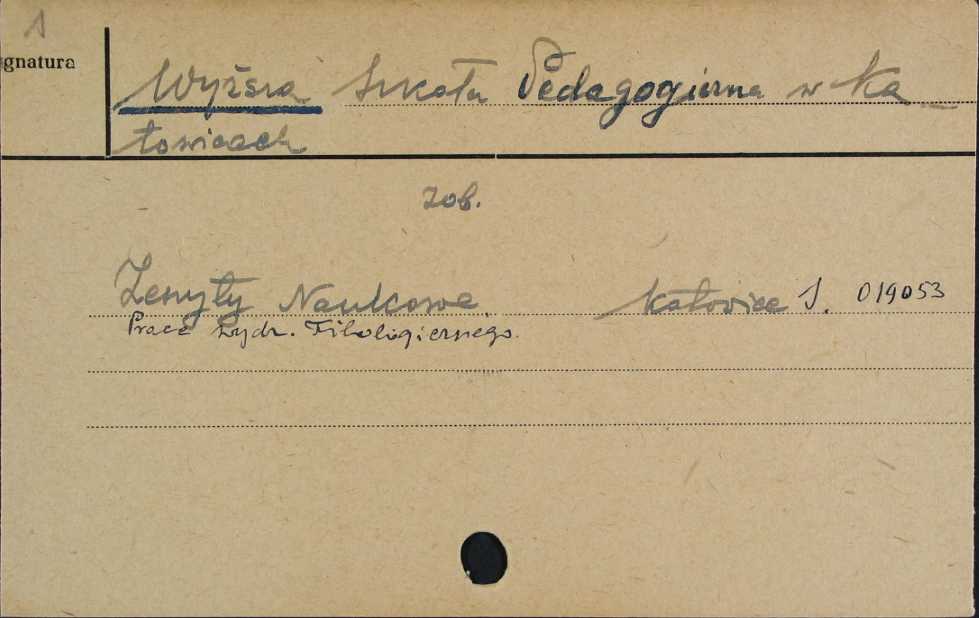 1
gnatura
Wyższa Szkoła Pedagogiczna w Ka-
towicach
zob.
Zeszyty Naukowe. Katowice S. 019053
Prace Wydz. Filologicznego.